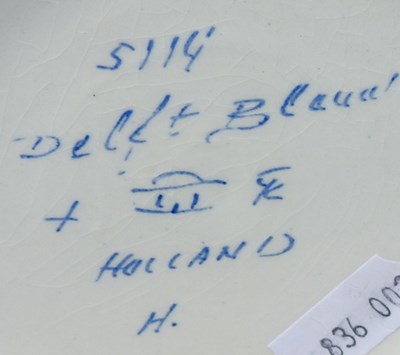 5114
Delft Blauw
+ K
HOLLAND
H.
836 00